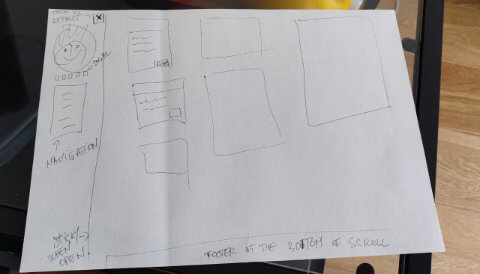 OPEN BY
DEFAULT
X
SOCIAL
NAVIGATION
STICKY
WHEN
OPEN!
FOOTER AT THE BOTTOM OF SCROLL